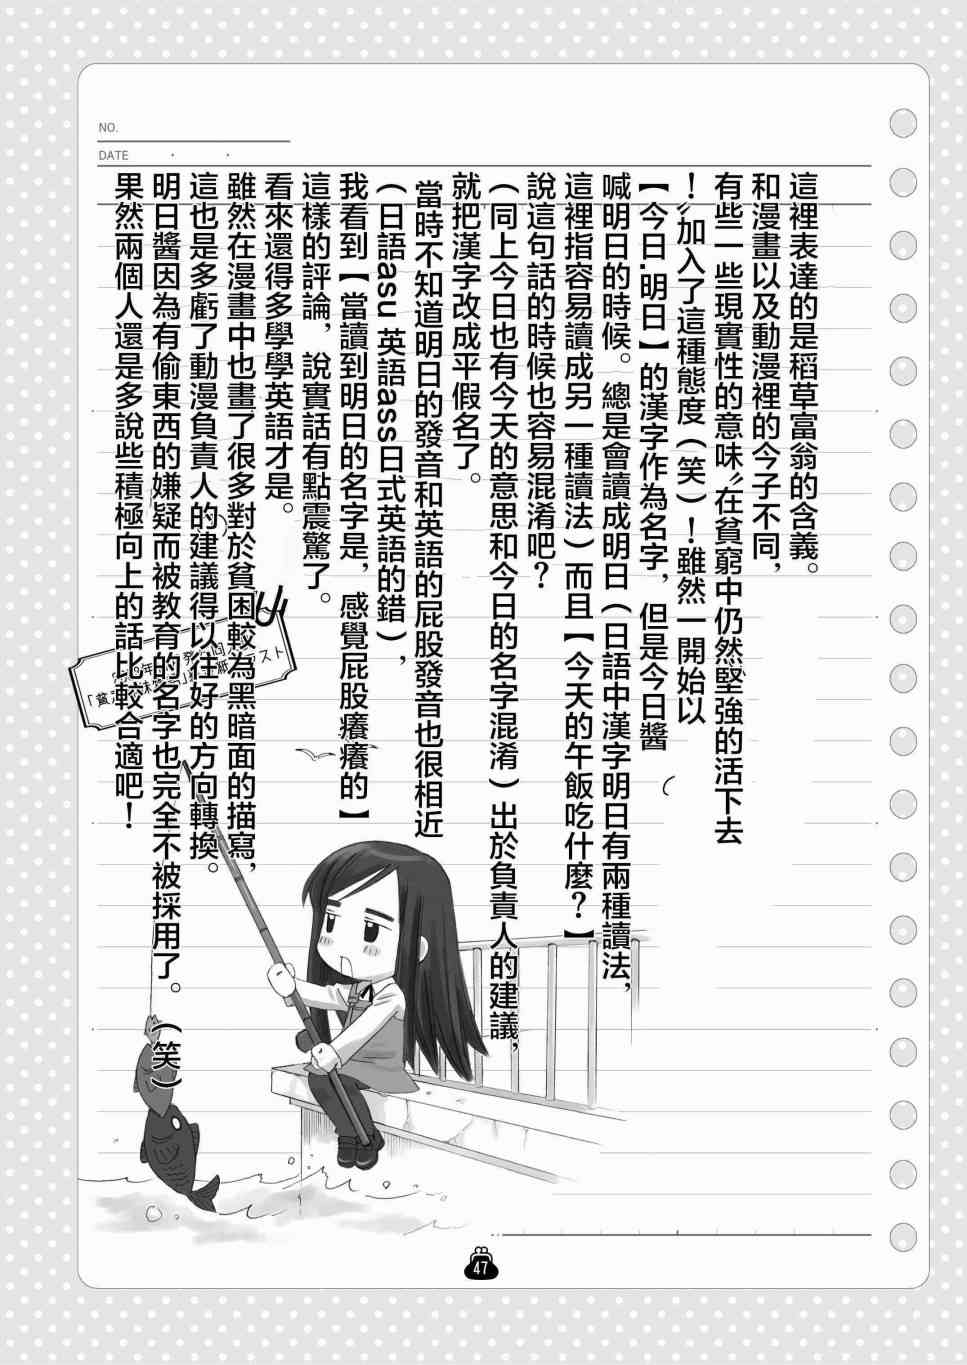 NO.
DATE ・ ・
這裡表達的是稻草富翁的含義。
和漫畫以及動漫裡的今子不同，
有些一些現實性的意味〃在貧窮中仍然堅強的活下去
！〃加入了這種態度（笑）！雖然一開始以
【今日.明日】的漢字作為名字，但是今日醬
喊明日的時候。總是會讀成明日（日語中漢字明日有兩種讀法，
這裡指容易讀成另一種讀法）而且【今天的午飯吃什麼？】
說這句話的時候也容易混淆吧？
（同上今日也有今天的意思和今日的名字混淆）出於負責人的建議，
就把漢字改成平假名了。
當時不知道明日的發音和英語的屁股發音也很相近
（日語asu 英語ass日式英語的錯），
我看到【當讀到明日的名字是，感覺屁股癢癢的】
這樣的評論，說實話有點震驚了。
看來還得多學學英語才是。
雖然在漫畫中也畫了很多對於貧困較為黑暗面的描寫，
這也是多虧了動漫負責人的建議得以往好的方向轉換。
明日醬因為有偷東西的嫌疑而被教育的名字也完全不被採用了。（笑）
果然兩個人還是多說些積極向上的話比較合適吧！
47